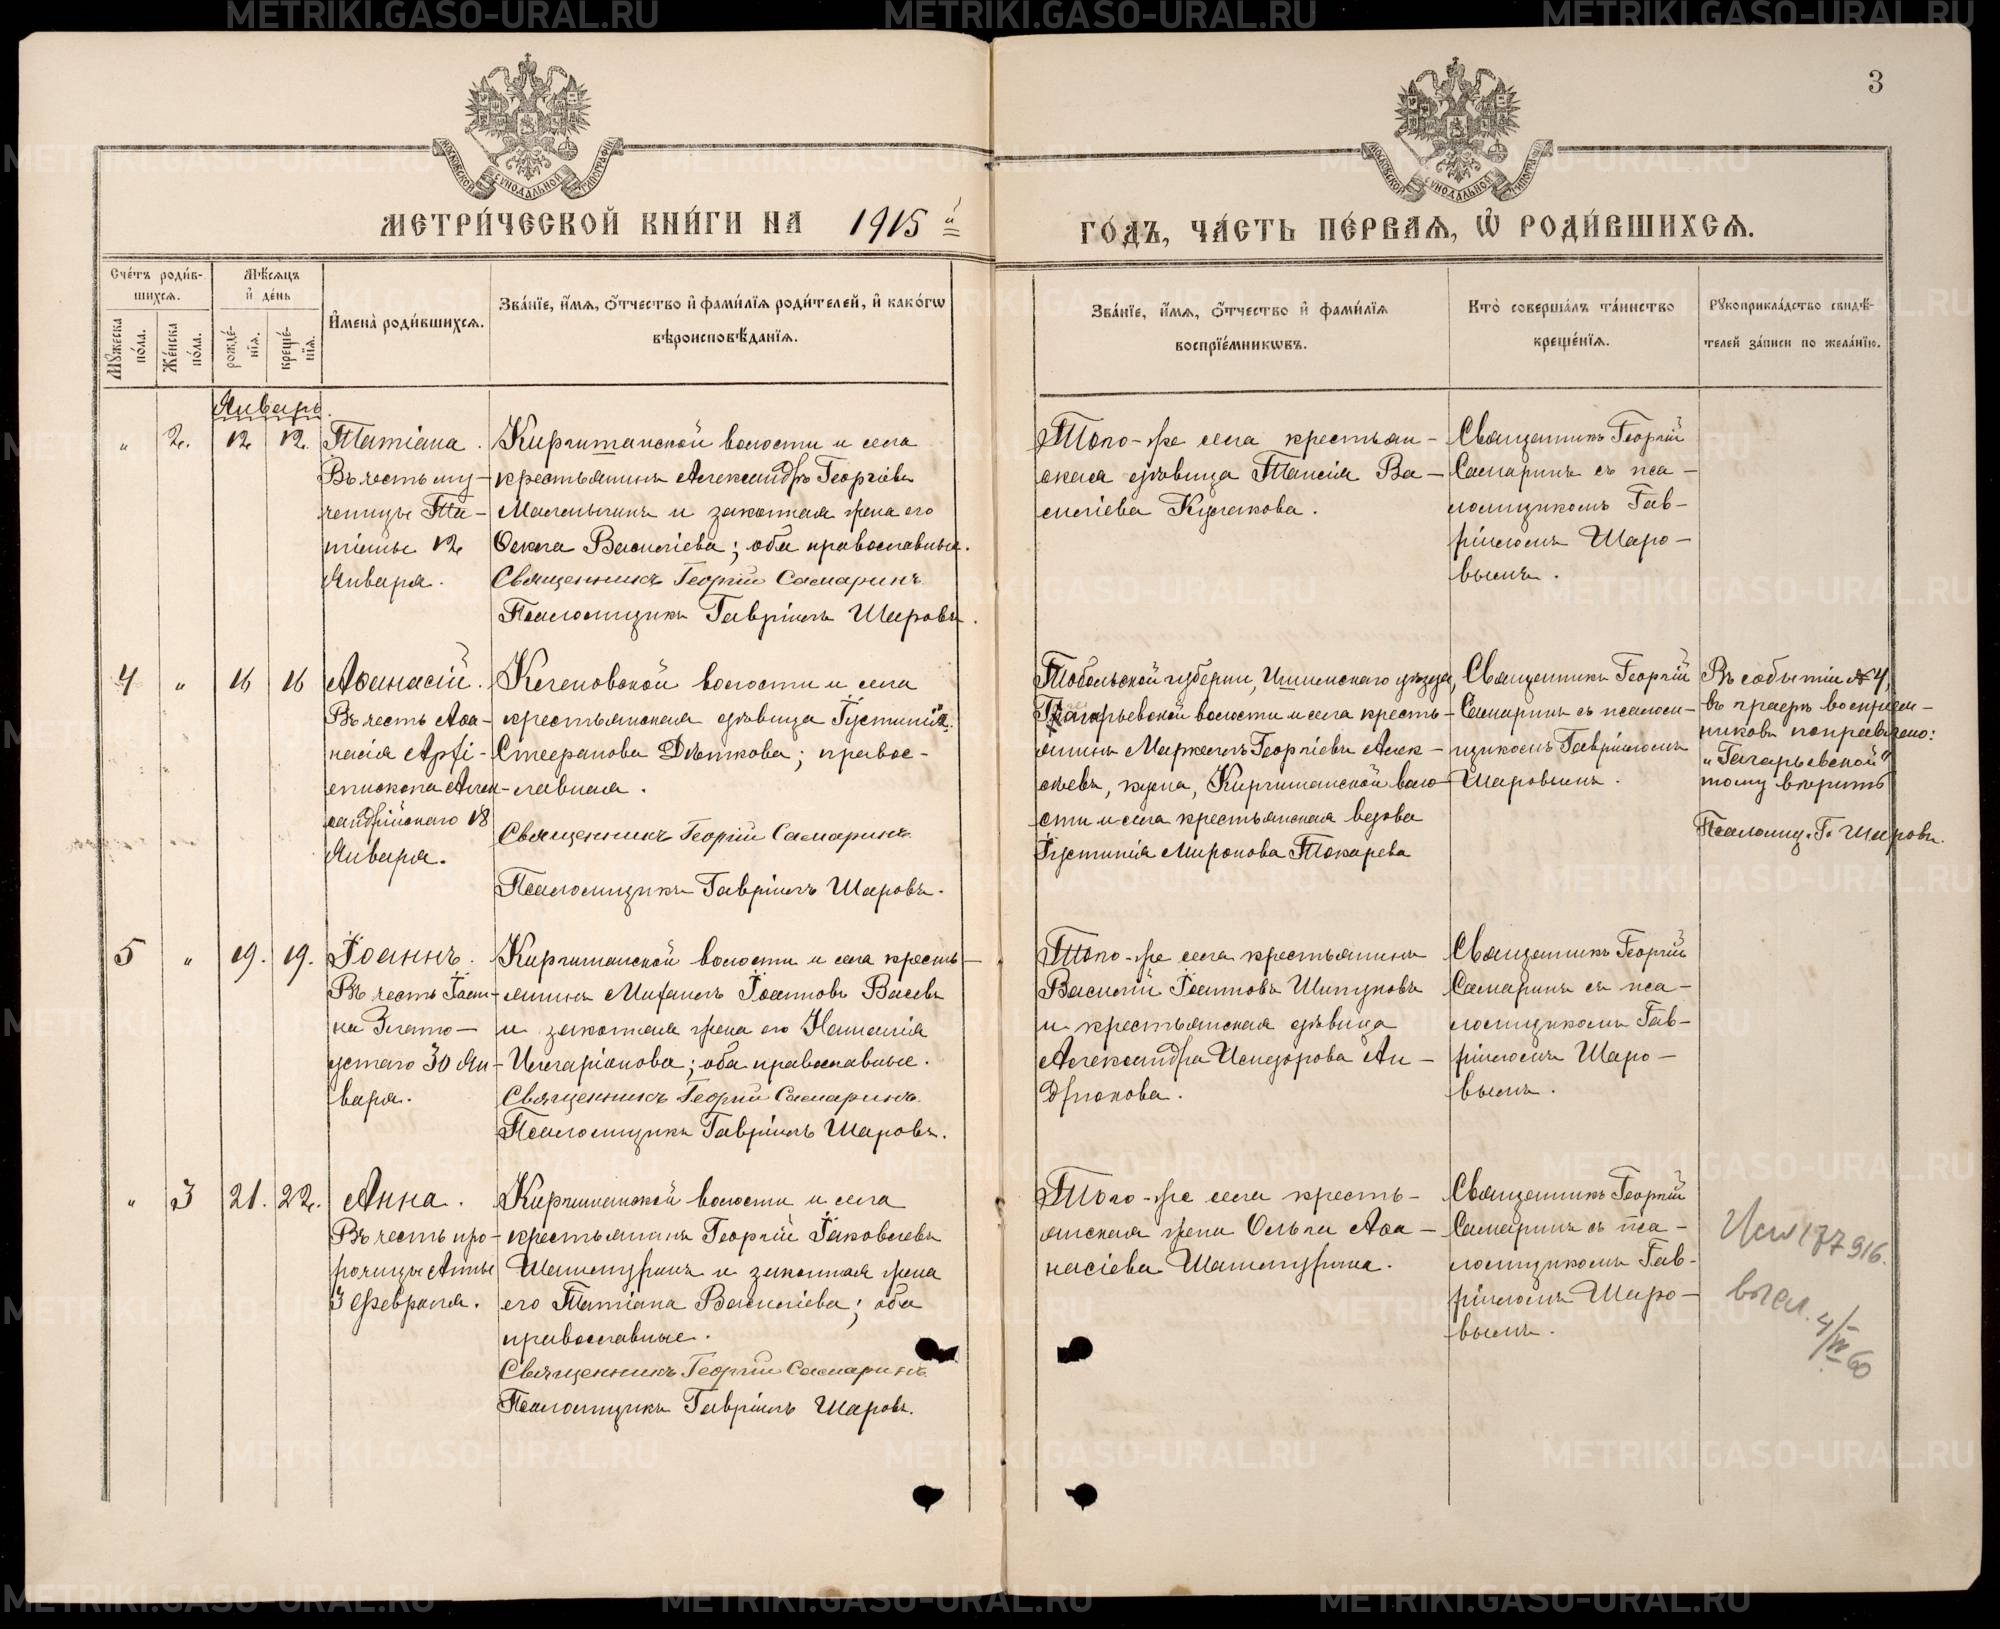 3
МЕТРИ́ЧЕСКОЙ КНИ́ГИ НА 1915 й
ГО́ДЪ, ЧА́СТЬ ПЕ́РВАЯ, Ѡ҆ РОДИ́ВШИХСЯ.
Сче́тъ роди́в-
шихся.
Мѣ́сяцъ
и҆ де́нь
Мꙋ́жеска по́ла.
Же́нска по́ла.
рожде́-
нїя.
креще́-
нїя.
И҆мена̀ роди́вшихся.
Зва́нїе, и҆́мя, ѻ҆́тчество и҆ фами́лїя роди́телей, и҆ како́гѡ
вѣроисповѣ́данїя.
Зва́нїе, и҆́мя, ѻ҆́тчество и҆ фами́лїя
воспрїе́мникѡвъ.
Кто̀ соверша́лъ та́инство
креще́нїя.
Рꙋкоприкла́дство свидѣ́-
телей за́писи по жела́нїю.
Январь.
" 2. 12 12.
Татіана.
Въ честь му-
ченицы Та-
тіаны 12
Января.
Киргишанской волости и села
крестьянинъ Александръ Георгіевъ
и законная жена его
Васильева; оба православные.
Священникъ Георгій Самаринъ
Псаломщикъ Гавріилъ Шаровъ.
Того-же села крестьян-
ская дѣвица Таисія Ва-
сильева Кулакова.
Священникъ Георгій
Самаринъ съ пса-
ломщикомъ Гав-
ріиломъ Шаро-
вымъ.
4 " 16 16
Аѳанасій.
Въ честь Аѳа-
насія Архі-
епископа Алек-
сандрійскаго 18
Января.
Кленовской волости и села
крестьянская дѣвица Іустинія
Стефанова Дѣткова; правос-
лавная.
Священникъ Георгій Самаринъ
Псаломщикъ Гавріилъ Шаровъ.
Тобольской губерніи, Ишимскаго уѣзда,
Гагарьевской волости и села кресть-
янинъ Маркелъ Георгіевъ Алек-
сѣевъ, Киргишанской воло-
сти и села крестьянская вдова
Іустинія Миронова Токарева
Священникъ Георгій
Самаринъ съ псалом-
щикомъ Гавріиломъ
Шаровымъ.
Въ событіи № 4,
въ графѣ воспріем-
никовъ поправлено:
„Гагарьевской"
тому вѣрить
Псаломщ. Г. Шаровъ.
5 " 19. 19.
Іоаннъ.
Въ честь Іоан-
на Злато-
устаго 30 Ян-
варя.
Киргишанской волости и села кресть-
янинъ Михаилъ Іоанновъ Васевъ
и законная жена его Наталія
Илларіонова; оба православные.
Священникъ Георгій Самаринъ.
Псаломщикъ Гавріилъ Шаровъ.
Того-же села крестьянинъ
Василій Іоанновъ Шипуновъ
и крестьянская дѣвица
Александра Исидорова Ан-
дрюкова.
Священникъ Георгій
Самаринъ съ пса-
ломщикомъ Гав-
ріиломъ Шаро-
вымъ.
" 3 21. 22.
Анна.
Въ честь про-
рочицы Анны
3 Февраля.
Киргишанской волости и села
крестьянинъ Георгій Іаковлевъ
Шашмуринъ и законная жена
его Татіана Васильева; оба
православные.
Священникъ Георгій Самаринъ
Псаломщикъ Гавріилъ Шаровъ.
Того-же села кресть-
янская жена Ольга Аѳа-
насіева Шашмурина.
Священникъ Георгій
Самаринъ съ пса-
ломщикомъ Гав-
ріиломъ Шаро-
вымъ.
177916.
высл. 4/IV 60